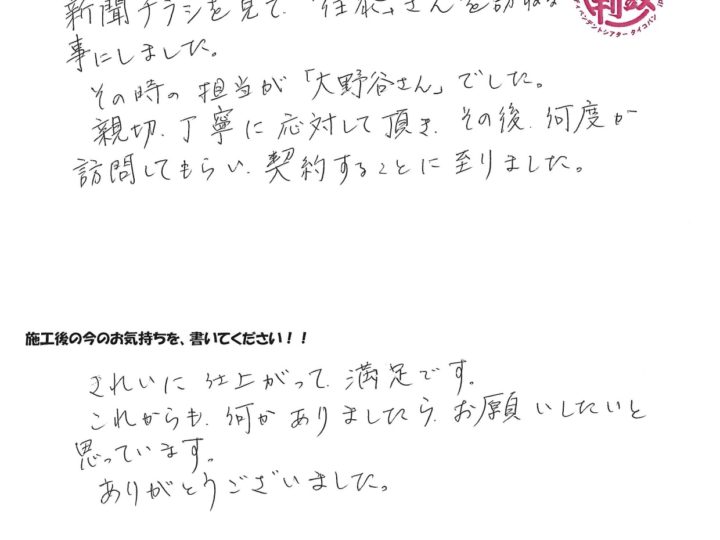 新聞チラシを見て、「住家」さんを訪ねる
事にしました。
その時の担当が「大野谷さん」でした。
親切、丁寧に応対して頂き、その後、何度か
訪問してもらい、契約することに至りました。
施工後の今のお気持ちを、書いてください！！
きれいに仕上がって、満足です。
これからも、何かありましたら、お願いしたいと
思っています。
ありがとうございました。